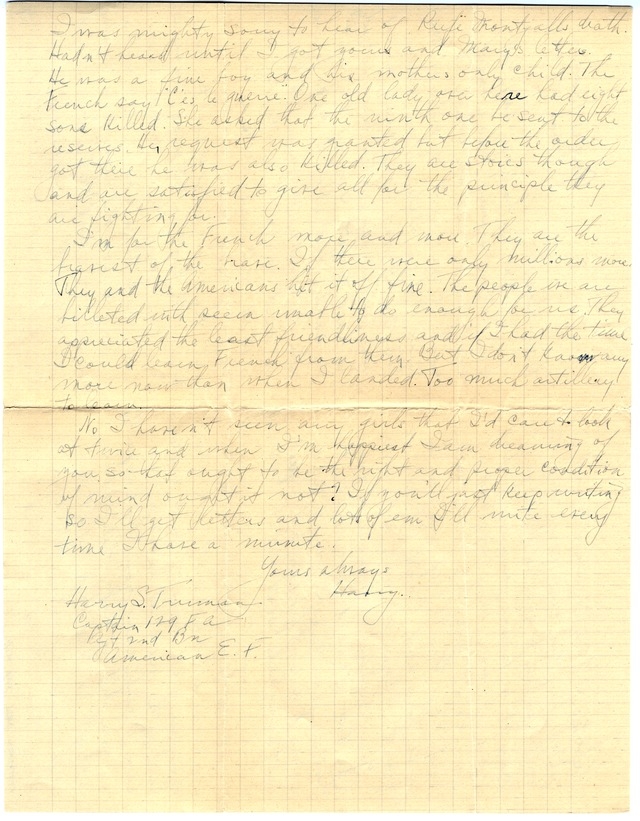 I was mighty sorry to hear of Rufe Montyalls death.
Hadn't heard until I got yours and Mary's letter.
He was a fine boy and his mothers only child. The
French say "C'es le guerre". One old lady over here had eight
sons killed. She asked that the ninth one be sent to the
reserves. Her request was granted but before the order
got there he was also killed. They are stoics though
and are satisfied to give all for the principle they
are fighting for.
I'm for the French more and more. They are the
bravest of the brave. If there were only millions more.
They and the Americans hit it off fine. The people we are
billeted with seem unable to do enough for us. They
appreciated the least friendliness and if I had the time
I could learn French from them. But I don't know any
more now than when I landed. Too much artillery
to learn.
No I haven't seen any girls that I'd care to look
at twice and when I'm happiest I am dreaming of
you so that ought to be the right and proper condition
of mind ought it not? If you'll just keep writing
so I'll get letters and lots of em I'll write every
time I have a minute.
Yours always
Harry.
Harry S. Truman
Captain 129 F A
2nd Bn
American E. F.